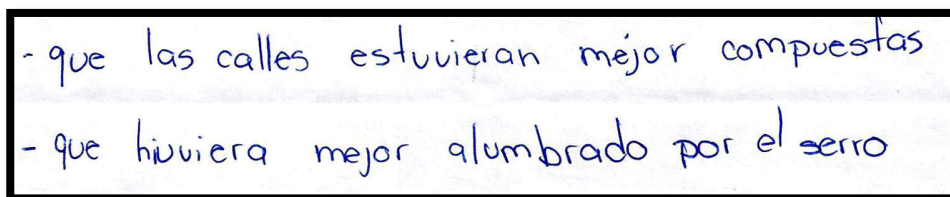 - que las calles estuvieran mejor compuestas
- que hiuviera mejor alumbrado por el serro